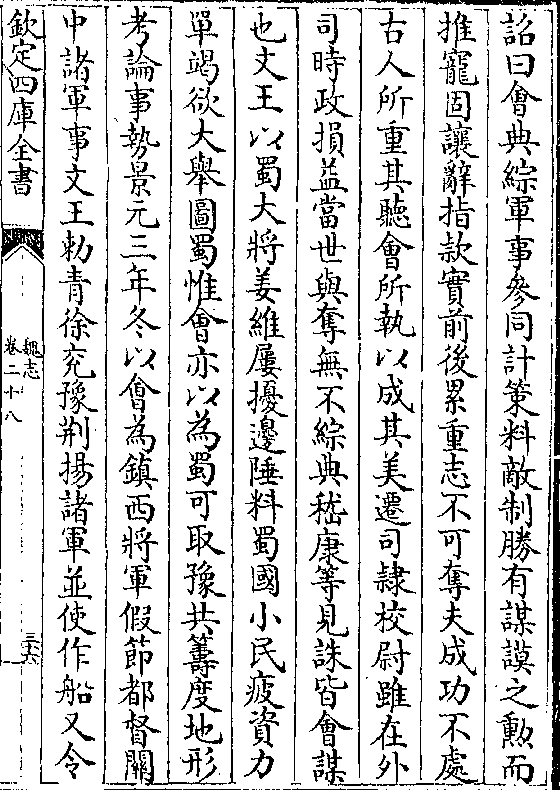 詔曰會典綜軍事參同計策料敵制勝有謀謨之勲而
推寵固讓辭指款實前後累重志不可奪夫成功不處
古人所重其聽會所執以成其美遷司隸校尉雖在外
司時政損益當世與奪無不綜典嵇康等見誅皆會謀
也文王以蜀大將姜維屢擾邊陲料蜀國小民疲資力
單竭欲大舉圖蜀惟會亦以為蜀可取豫共籌度地形
考論事勢景元三年冬以會為鎮西將軍假節都督關
中諸軍事文王勅青徐兖豫荆揚諸軍並使作船又令
欽定四庫全書
魏志
卷二十八
三六